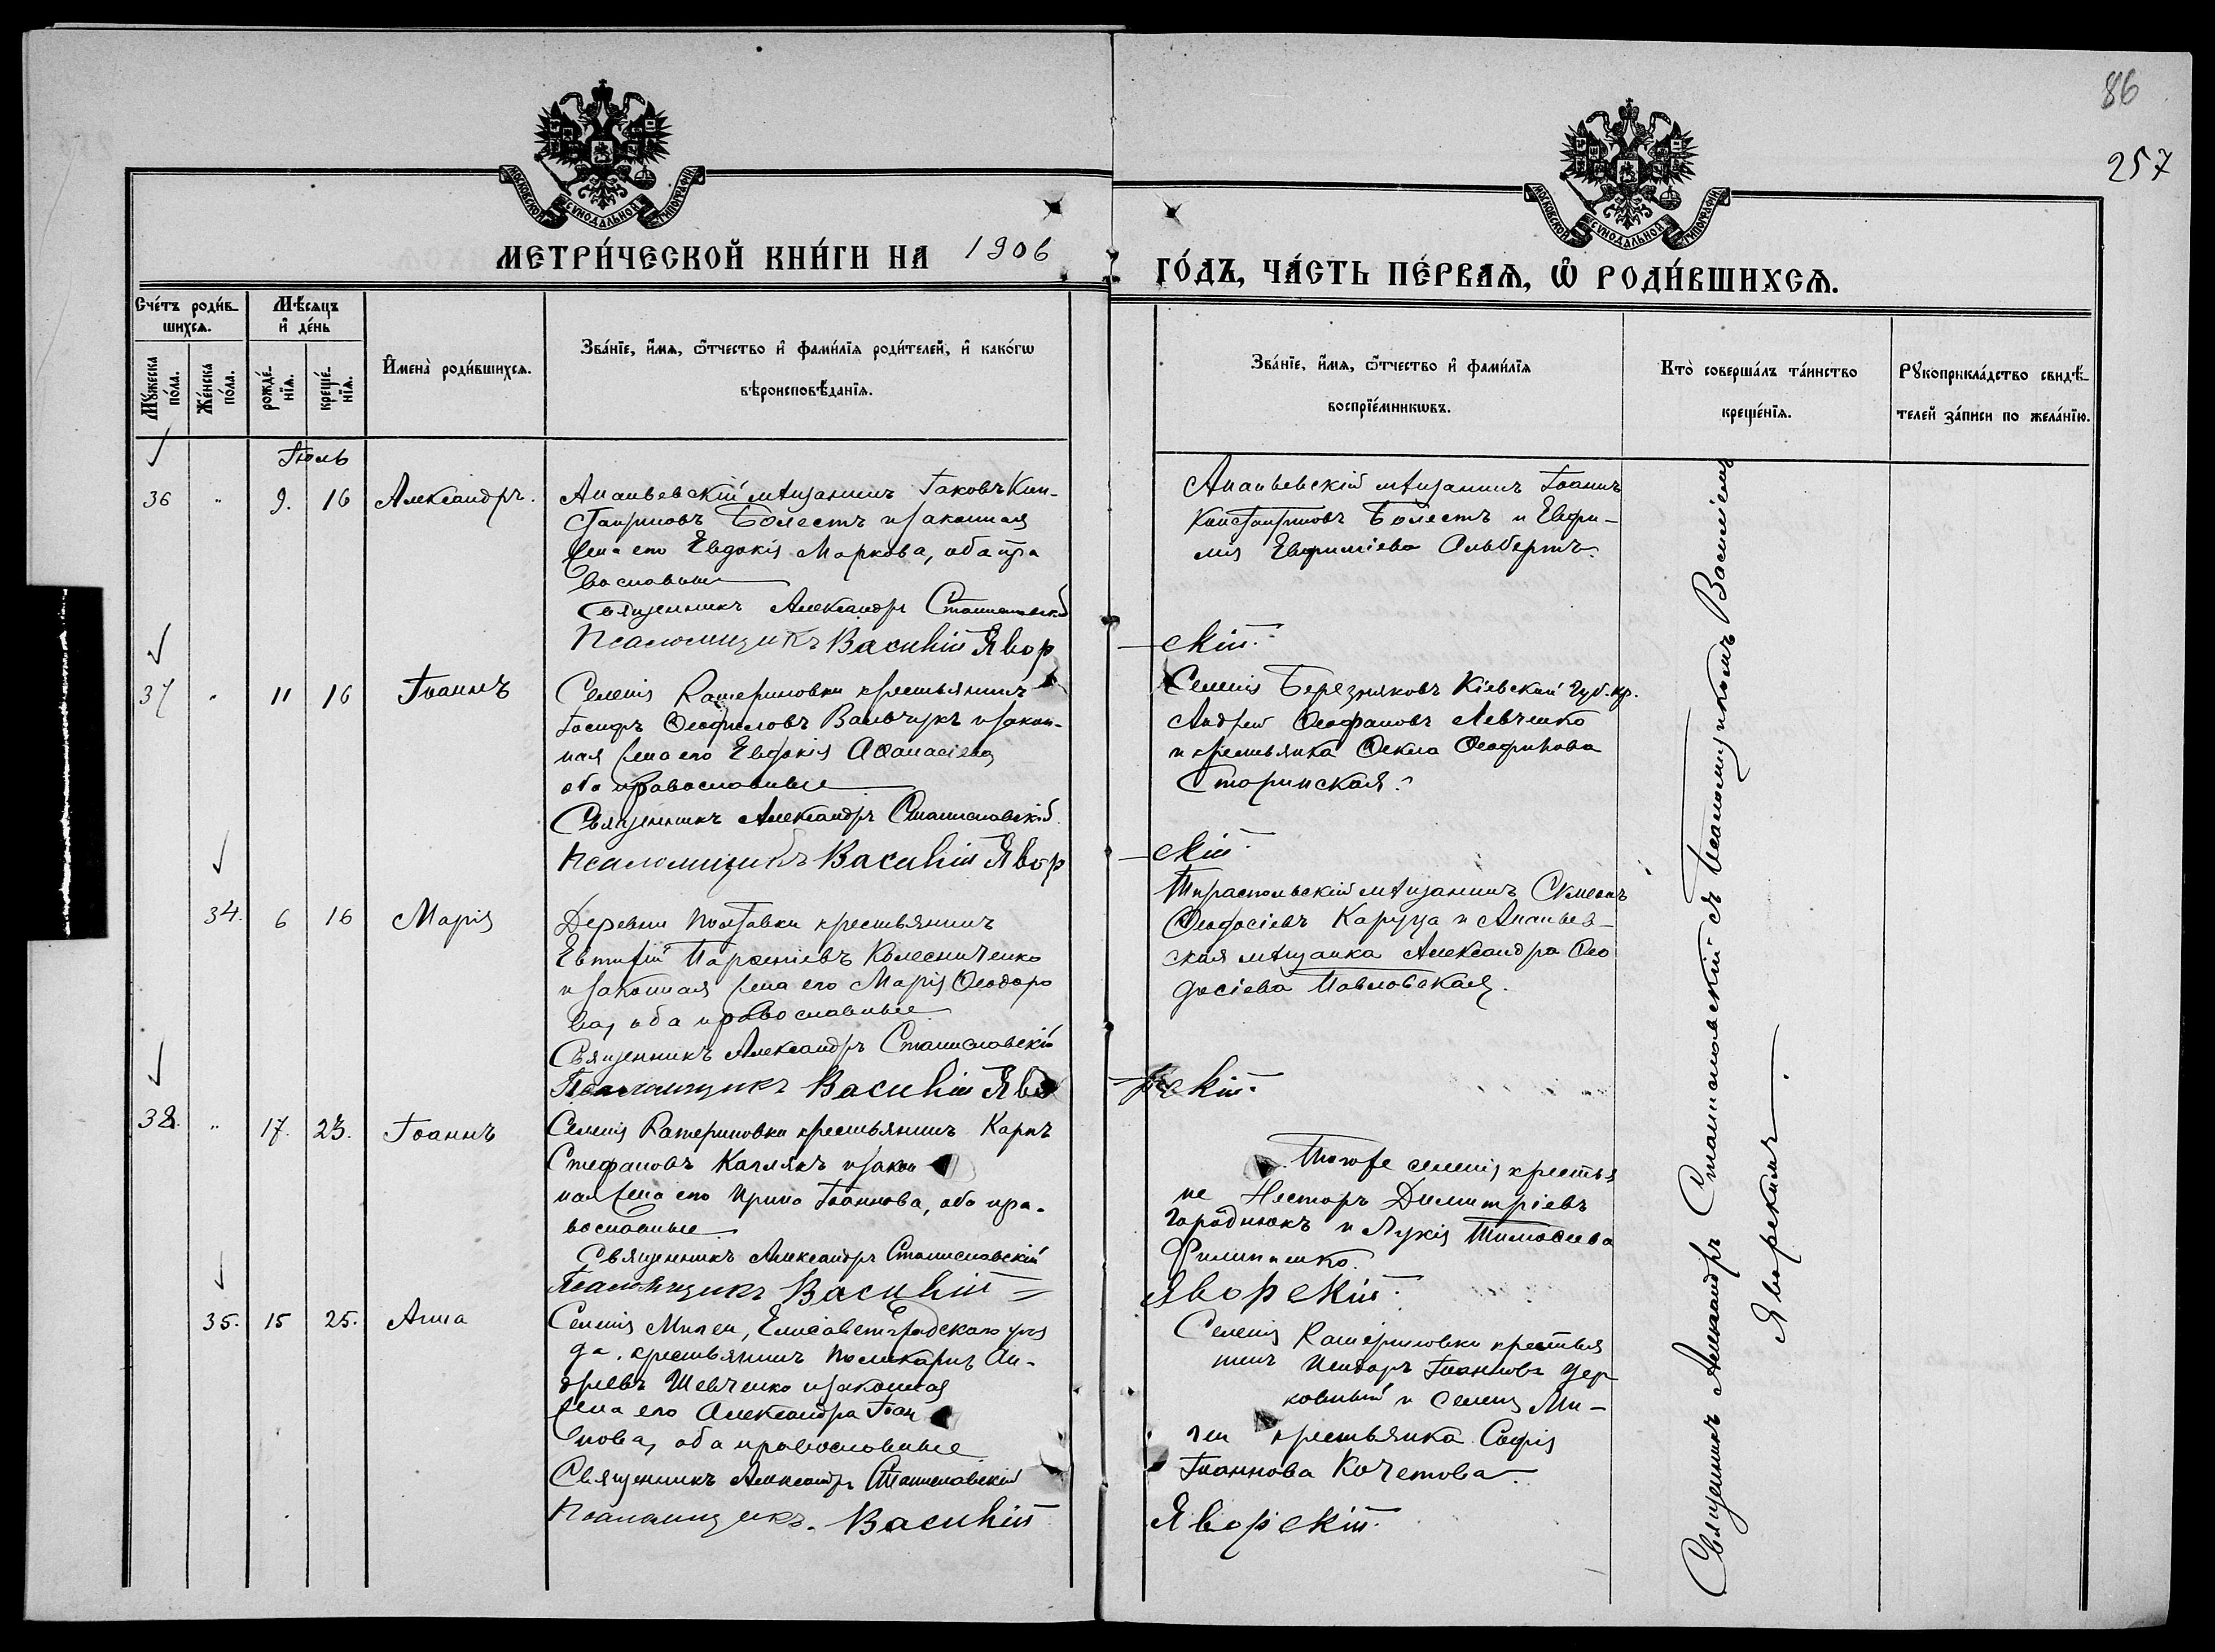 86
257
МОСКОВСКОЙ СѴНОДАЛЬНОЙ ТИПОГРАФІИ
МОСКОВСКОЙ СѴНОДАЛЬНОЙ ТИПОГРАФІИ
МЕТРИ́ЧЕСКОЙ КНИ́ГИ НА 1906
ГО́ДЪ, ЧА́СТЬ ПЕ́РВАѦ, Ѽ РОДИ́ВШИХСѦ.
Сче́тъ роди́в-
шихсѧ.
Мѣ́сѧцъ
и҆ де́нь
Мꙋ́жеска
по́ла.
Же́нска
по́ла.
рожде́-
нїѧ.
креще́-
нїѧ.
И҆мена̀ роди́вшихсѧ.
Зва́нїе, и҆́мѧ, ѻ҆́тчество и҆ фами́лїѧ роди́телей, и҆ како́гѡ
вѣроисповѣ́данїѧ.
Зва́нїе, и҆́мѧ, ѻ҆́тчество и҆ фами́лїѧ
воспрїе́мникѡвъ.
Кто̀ соверша́лъ та́инство
креще́нїѧ.
Рꙋкоприкла́дство свидѣ́-
телей за́писи по жела́нїю.
Іюль
36 " 9. 16 Александръ.
Ананьевскій мѣщанинъ Іаковъ Кон-
стантиновъ Болестъ и законная
жена его Евдокія Маркова, оба пра
вославные
Священникъ Александръ Станиславскій
Псаломщикъ Василій Явор
Ананьевскій мѣщанинъ Іоаннъ
Константиновъ Болестъ и Евфи-
мія Евфиміева Альбертъ.
скій.
37 " 11 16 Іоаннъ
Селенія Катериновки крестьянинъ
Іосифъ Ѳеофиловъ Вальчукъ и закон-
ная жена его Евдокія Аѳанасіева
оба православные
Священникъ Александръ Станиславскій
Псаломщикъ Василій Явор
Селенія Березняковъ Кіевской губ. кр.
Андрей Ѳеофановъ Левченко
и крестьянка Ѳекла Ѳеофилова
Сторинская.
скій.
34. 6 16 Марія
Деревни Полтавки крестьянинъ
Евтихій Парѳеніевъ Колесниченко
и законная жена его Марія Ѳеодоро
ва, оба православные
Священникъ Александръ Станиславскій
Псаломщикъ Василій Яво
Тираспольскій мѣщанинъ Симеонъ
Ѳеодосіевъ Каруца и Ананьев-
ская мѣщанка Александра Ѳео
досіева Павловская.
рскій.
38. " 17. 23. Іоаннъ
Селенія Катериновки крестьянинъ Карпъ
Стефановъ Каплякъ и закон
ная жена его Ирина Іоаннова, оба пра-
вославные
Священникъ Александръ Станиславскій
Псаломщикъ Василій
Тогоже селенія крестья
не Несторъ Димитріевъ
Городнюкъ и Лукія Тимоѳеева
Филипенко.
Яворскій.
35. 15 25. Анна
Селенія Мигеи, Елисаветградскаго уѣз
да, крестьянинъ Поликарпъ Ан-
дреевъ Шевченко и законная
жена его Александра Іоан
нова, оба православные
Священникъ Александръ Станиславскій
Псаломщикъ. Василій
Селенія Катериновки крестья
нинъ Исидоръ Іоанновъ Цер
ковный и селенія Ми-
геи крестьянка Софія
Іоаннова Кочетова.
Яворскій.
Священникъ Александръ Станиславскій съ Псаломщикомъ Василіемъ
Яворскимъ.